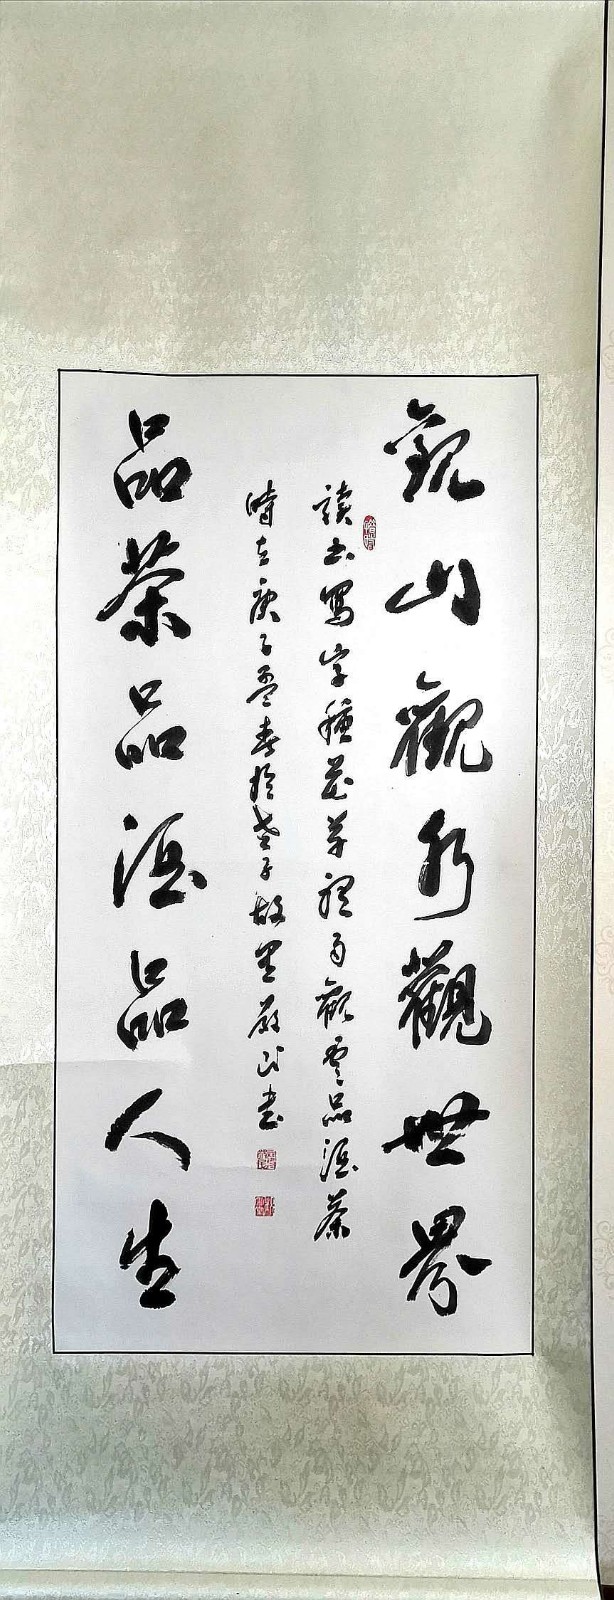 觀山觀水觀世界
讀書寫字種花草聽雨觀雲品酒茶
時在庚子孟春於老子故里書
品茶品酒品人生